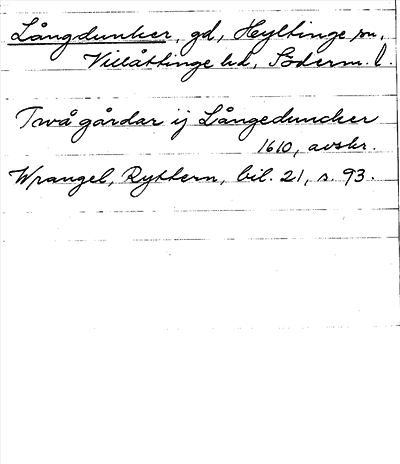 Långdunker, gd, Hyltinge sn,
Villåttinge hd, Söderm. l.
Twå gårdar ij Långeduncker
1610, avskr.
Wrangel, Ryttern, bil. 21, s. 93.